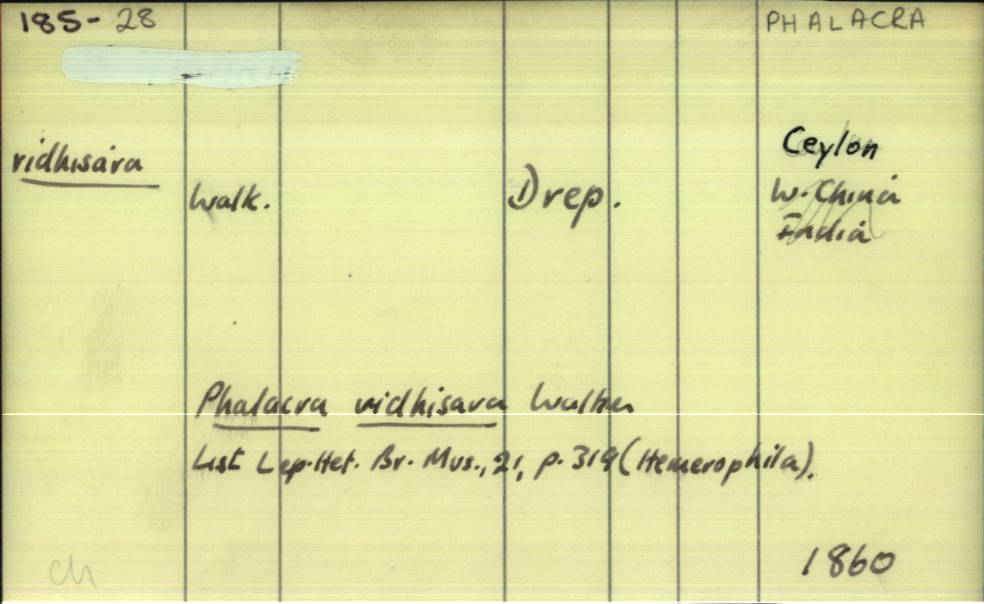 185-28
PHALACRA
vidhisara
Walk.
Drep.
Ceylon
W. China
India
Phalacra vidhisara Walker
List Lep. Het. Br. Mus., 21, p. 319 (Hemerophila).
ch
1860